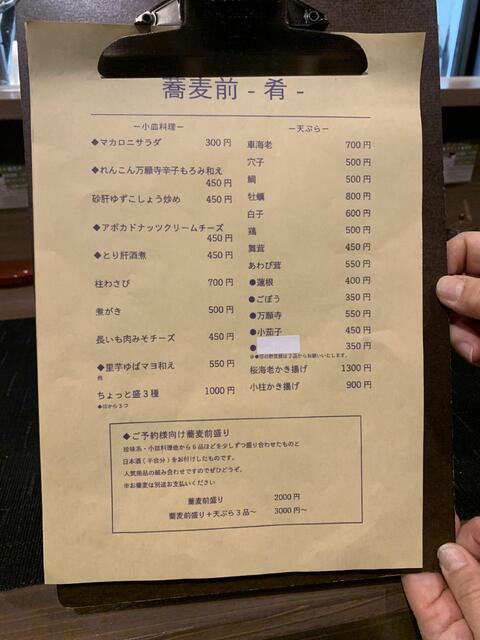 蕎麦前 - 肴 -
ー小皿料理ー
◆マカロニサラダ 300円
◆れんこん万願寺辛子もろみ和え
450円
砂肝ゆずこしょう炒め 450円
◆アボカドナッツクリームチーズ
450円
◆とり肝酒煮 450円
柱わさび 700円
煮がき 500円
長いも肉みそチーズ 450円
◆里芋ゆばマヨ和え 550円
他
ちょっと盛3種 1000円
◆印から3つ
ー天ぷらー
車海老 700円
穴子 500円
鯛 500円
牡蠣 800円
白子 600円
鶏 500円
舞茸 450円
あわび茸 550円
●蓮根 400円
●ごぼう 350円
●万願寺 550円
●小茄子 450円
● 350円
※●印の野菜類は2品からお願いいたします。
桜海老かき揚げ 1300円
小柱かき揚げ 900円
◆ご予約様向け蕎麦前盛り
珍味系・小皿料理他から6品ほどを少しずつ盛り合わせたものと
日本酒（半合分）をお付けしたものです。
人気商品の組み合わせですのでぜひどうぞ。
※お蕎麦は別途お支払いください
蕎麦前盛り 2000円
蕎麦前盛り＋天ぷら3品〜 3000円〜